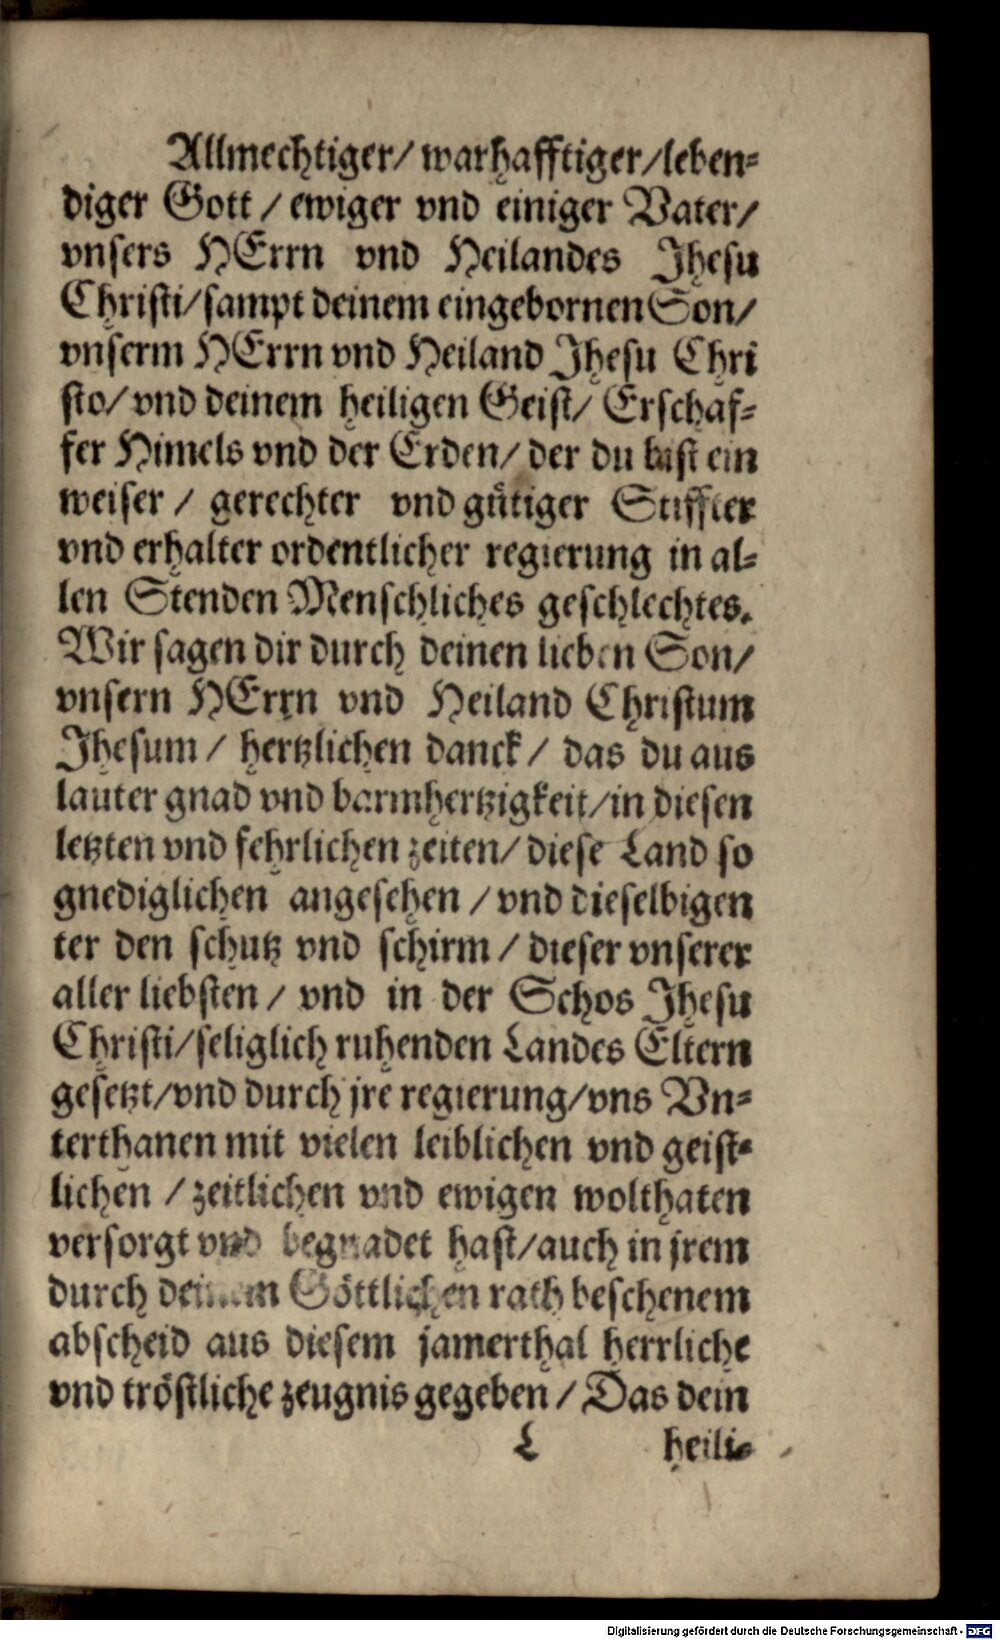 Allmechtiger/ warhafftiger/leben-
diger Gott / ewiger vnd einiger Vater/
vnsers HErrn vnd Heilandes Jhesu
Christi/sampt deinem eingebornen Son/
vnserm HErrn vnd Heiland Jhesu Chri
sto/ vnd deinem heiligen Geist/ Erschaf-
fer Himels vnd der Erden/ der du bist ein
weiser / gerechter vnd gütiger Stiffter
vnd erhalter ordentlicher regierung in al-
len Stenden Menschliches geschlechtes.
Wir sagen dir durch deinen lieben Son/
vnsern HErrn vnd Heiland Christum
Jhesum / hertzlichen danck / das du aus
lauter gnad vnd barmhertzigkeit/in diesen
letzten vnd fehrlichen zeiten/ diese Land so
gnediglichen angesehen / vnd dieselbigen
ter den schutz vnd schirm / dieser vnserer
aller liebsten / vnd in der Schos Jhesu
Christi/seliglich ruhenden Landes Eltern
gesetzt/vnd durch jre regierung/vns Vn-
terthanen mit vielen leiblichen vnd geist-
lichen / zeitlichen vnd ewigen wolthaten
versorgt vnd begnadet hast/auch in jrem
durch deinem Göttlichen rath beschenem
abscheid aus diesem jamerthal herrliche
vnd tröstliche zeugnis gegeben / Das dein
L heili-
Digitalisierung gefördert durch die Deutsche Forschungsgemeinschaft - DFG